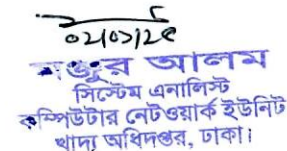 ০২/০১/২৫
মঞ্জুর আলম
সিস্টেম এনালিস্ট
কম্পিউটার নেটওয়ার্ক ইউনিট
খাদ্য অধিদপ্তর, ঢাকা।